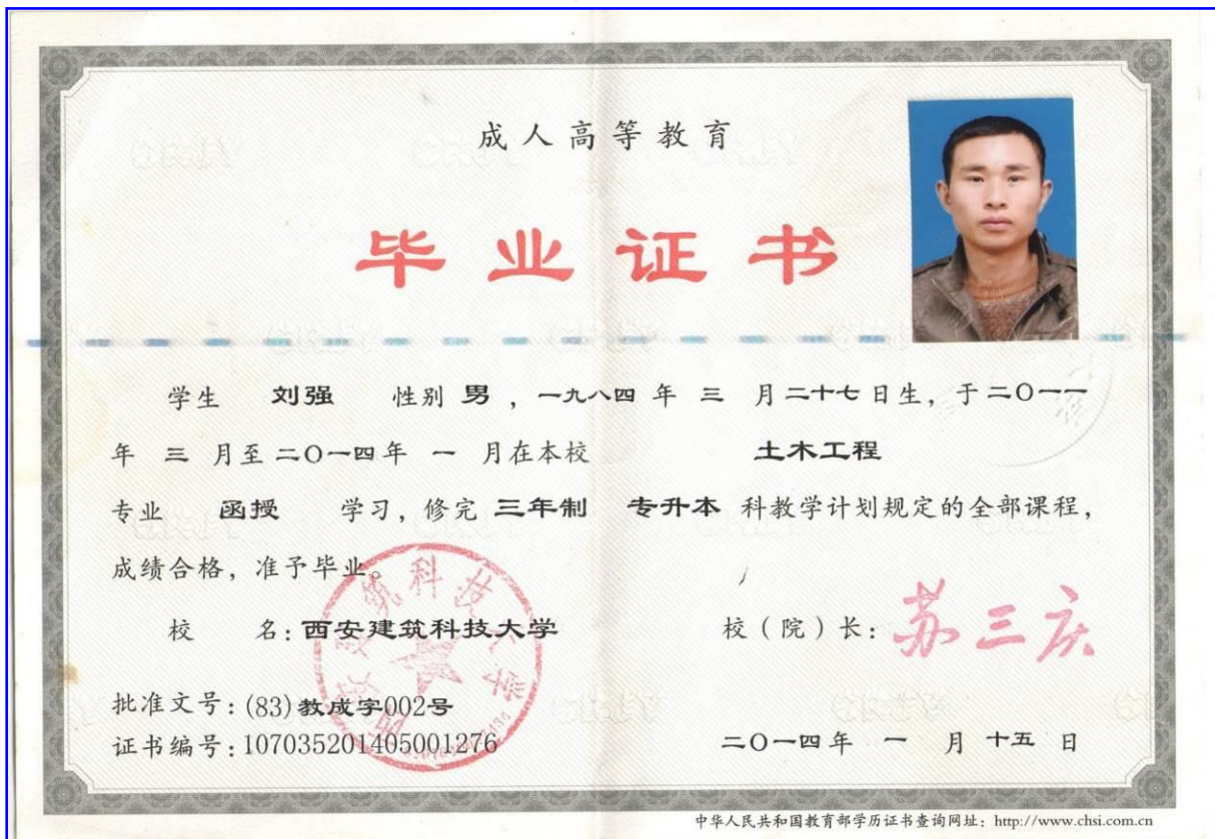 成人高等教育
毕业证书
学生 刘强 性别 男，一九八四 年 三 月二十七日生，于二〇一一
年 三 月至二〇一四年 一 月在本校 土木工程
专业 函授 学习，修完 三年制 专升本 科教学计划规定的全部课程，
成绩合格，准予毕业。
校 名：西安建筑科技大学 校（院）长：苏三庆
批准文号：(83)教成字002号
证书编号：107035201405001276 二〇一四年 一 月 十五 日
中华人民共和国教育部学历证书查询网址：http://www.chsi.com.cn